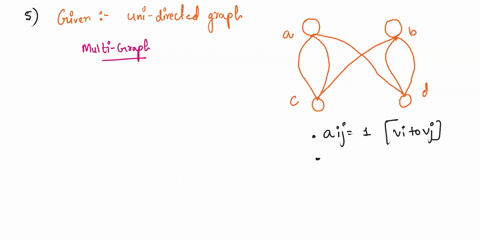 5) Given :- uni-directed graph
Multi-Graph
a b
c d
• aij = 1 [vi to vj]
•